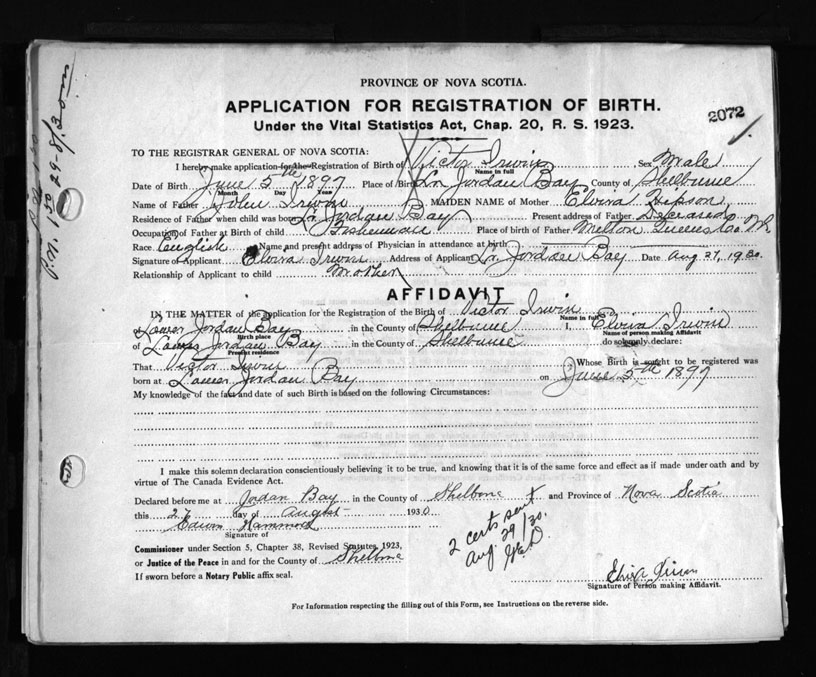 PROVINCE OF NOVA SCOTIA.
APPLICATION FOR REGISTRATION OF BIRTH.
2072
Under the Vital Statistics Act, Chap. 20, R. S. 1923.
TO THE REGISTRAR GENERAL OF NOVA SCOTIA:
I hereby make application for the Registration of Birth of Victor Irwin Sex Male
Name in full
Date of Birth June 5th 1897 Place of Birth Lr. Jordan Bay County of Shelburne
Month Day Year
Name of Father John Irwin MAIDEN NAME of Mother Elvira Hipson
Residence of Father when child was born Lr. Jordan Bay Present address of Father Deceased
Occupation of Father at Birth of child Fisherman Place of birth of Father Queens Co. N.S.
Race English Name and present address of Physician in attendance at birth
Signature of Applicant Elvira Irwin Address of Applicant Lr. Jordan Bay Date Aug 27, 1930.
Relationship of Applicant to child Mother
AFFIDAVIT
IN THE MATTER of the application for the Registration of the Birth of Victor Irwin
Name in full
of Lower Jordan Bay in the County of Shelburne I, Elvira Irwin
Birth place Name of person making Affidavit
of Lower Jordan Bay in the County of Shelburne do solemnly declare:
Present residence
That Victor Irwin Whose Birth is sought to be registered was
born at Lower Jordan Bay on June 5th 1897
My knowledge of the fact and date of such Birth is based on the following Circumstances:
I make this solemn declaration conscientiously believing it to be true, and knowing that it is of the same force and effect as if made under oath and by
virtue of The Canada Evidence Act.
Declared before me at Jordan Bay in the County of Shelburne and Province of Nova Scotia
this 27 day of August 1930
Edwin Hammond
Signature of
2 certs sent
Aug 29/30.
Commissioner under Section 5, Chapter 38, Revised Statutes 1923,
or Justice of the Peace in and for the County of Shelburne
If sworn before a Notary Public affix seal.
Elvira Irwin
Signature of Person making Affidavit.
For Information respecting the filling out of this Form, see Instructions on the reverse side.